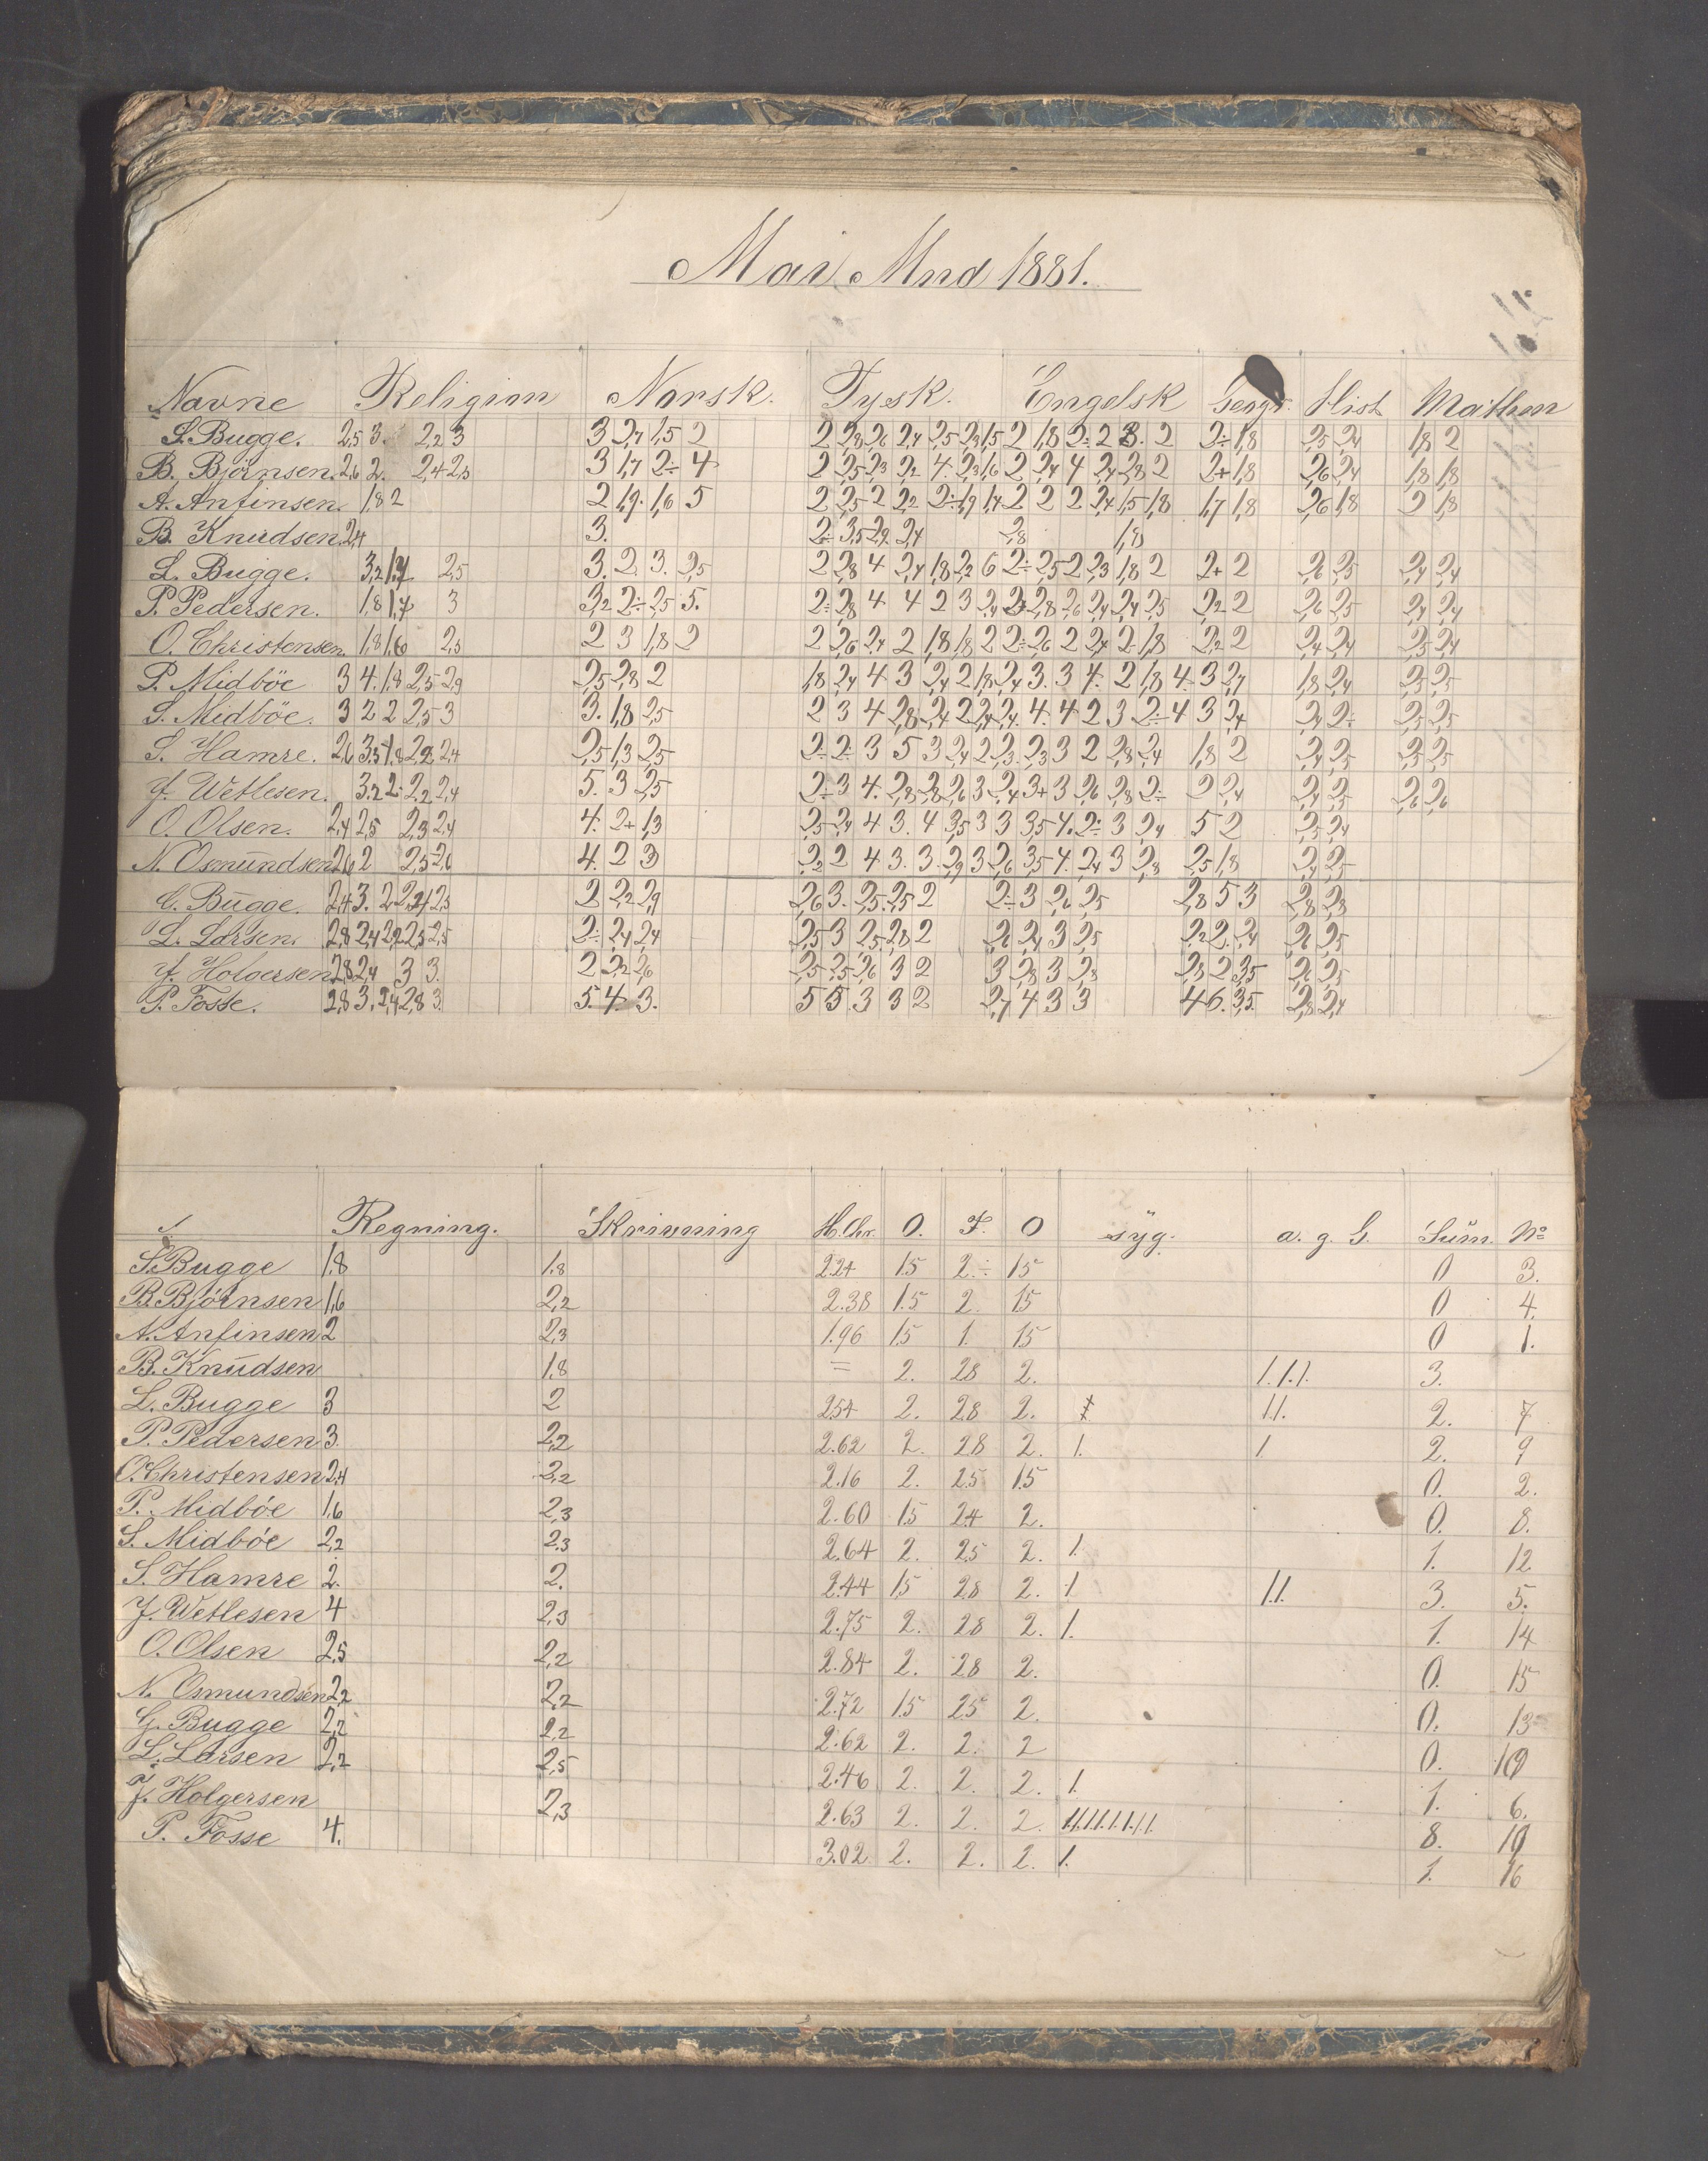 Mai Mnd 1881.
Navne Religion Norsk. Tysk. Engelsk Geogr. Hist Mathem
S. Bugge. 2,5 3. 2,2 3 3 2,7 1,5 2 2 2,8 2,6 2,4 2,5 2,3 1,5 2 1,8 2÷ 2 3. 2 2÷ 1,8 2,5 2,4 1,8 2
B. Björnsen. 2,6 2. 2,4 2,3 3 1,7 2÷ 4 2 2,5 2,3 2,2 4. 2,3 1,6 2 2,4 4 2,4 2,8 2 2+ 1,8 2,6 2,4 1,8 1,8
A. Anfinsen. 1,8 2 2 1,9. 1,6 5 2 2,5 2 2,2 2÷ 1,9 1,4 2 2 2 2,4 1,5 1,8 1,7 1,8 2,6 1,8 2 1,8
B. Knudsen. 2,4 3. 2÷ 3,5 2,2 2,4 2,8 1,8
L. Bugge. 3,2 1,7 2,5 3. 2. 3. 2,5 2 2,8 4 2,4 1,8 2,2 6 2÷ 2,5 2 2,3 1,8 2 2+ 2 2,6 2,5 2,4 2,4
P. Pedersen. 1,8 1,7 3 3,2 2÷ 2,5 5. 2÷ 2,8 4 4 2 3 2,4 2+ 2,8 2,6 2,4 2,4 2,5 2,2 2 2,6 2,5 2,4 2,4
O. Christensen. 1,8 1,6 2,3 2 3 1,8 2 2 2,6 2,4 2 1,8 1,8 2 2÷ 2,6 2 2,4 2÷ 1,8 2,2 2 2,4 2,4 2,5 2,4
P. Midböe 3 4. 1,8 2,5 2,9 2,5 2,8 2 1,8 2,4 4 3 2,4 2 1,8 2,4 3. 3 4. 2 1,8 4. 3 2,7 1,8 2,4 2,5 2,5
S. Midböe. 3 2 2 2,5 3 3. 1,8 2,5 2 3 4 2,8 2,4 2 2,4 2,4 4. 4 2 3 2÷ 4 3 2,4 2,4 2÷ 2,5 2,5
S. Hamre. 2,6 3,5 1,8 2,2 2,4 2,5 1,3 2,5 2÷ 2÷ 3 5 3 2,4 2 2,3 2,3 3 2 2,8 2,4 1,8 2 2,4 2,5 2,5 2,5
J. Wetlesen. 3.2 2÷ 2,2 2,4 5. 3 2,5 2÷ 3 4. 2,8 2,8 2,6 3 2,4 3+ 3 2,6 2,8 2÷ 2 2,4 2,4 2,5 2,6 2,6
O. Olsen. 2,4 2,5 2,3 2,4 4. 2+ 1,3 2,5 2,4 4 3. 4 3,5 3 3 3,5 4. 2÷ 3 2,4 5 2 2,5 2,4
N. Osmundsen 2,6 2 2,5 2,6 4. 2 3 2,2 2 4 3. 3 2,9 3 2,6 3,5 4. 2,4 3 2,8 2,5 1,8 2,4 2,5
G. Bugge. 2,4 3. 2 2,4 2,5 2 2,2 2,9 2,6 3. 2,5 2,5 2 2÷ 3 2,6 2,5 2,8 5 3 2,8 2,8
L. Larsen. 2,8 2,4 2,2 2,5 2,5 2÷ 2,4 2,4 2,5 3 2,5 2,8 2 2,6 2,4 3 2,5 2,2 2. 2,4 2,6 2,5
J. Holgersen 2,8 2,4 3 3. 2 2,2 2,6 2,5 2,5 2,6 3 2 3 2,8 3 2,8 2,8 2 3,5 2,6 2,5
P. Fosse. 2,8 3. 2,4 2,8 3. 5. 4. 3. 5 5 3 3 2 2,7 4 3 3 4 6. 3,5. 2,8 2,4
Regning. Skrivning H.Chr. O. F. O syg. a. g. G. Sum. No
S. Bugge 1,8 1,8 2.24 15 2.÷ 15 0 3.
B. Björnsen 1,6 2,2 2.38 1.5 2. 15 0 4.
A. Anfinsen 2 2,3 1.96 15 1. 15 0 1.
B. Knudsen 1,8 = 2. 28 2. 1.1.1. 3.
L. Bugge 3 2 254 2. 28 2. 1.1. 2. 7
P. Pedersen 3. 2,2 2.62 2. 28 2. 1. 1 2. 9
O. Christensen 2,4 2,2 2.16 2. 25 15 0. 2.
P. Midböe 1,6 2,3 2.60 15 24 2. 0. 8.
S. Midböe 2,2 2.3 2.64 2. 25 2. 1. 1. 12
S. Hamre 2. 2. 2.44 15 28 2. 1 1.1. 3. 5.
J. Wetlesen 4 2,3 2.75 2. 28 2. 1. 1. 14
O. Olsen 2,5 2,2 2.84 2. 28 2. 0. 15
N. Osmundsen 2,2 2,2 2.72 15 25 2. 0. 13
G. Bugge 2,2 2,2 2.62 2. 2. 2 0. 10
L. Larsen 2,2 2,5 2.46 2. 2. 2. 1. 1. 6.
J. Holgersen 2,3 2.63 2. 2. 2. 1.1.1.1.1.1.1.1. 8. 10
P. Fosse 4. 3.02 2. 2. 2. 1. 1. 16